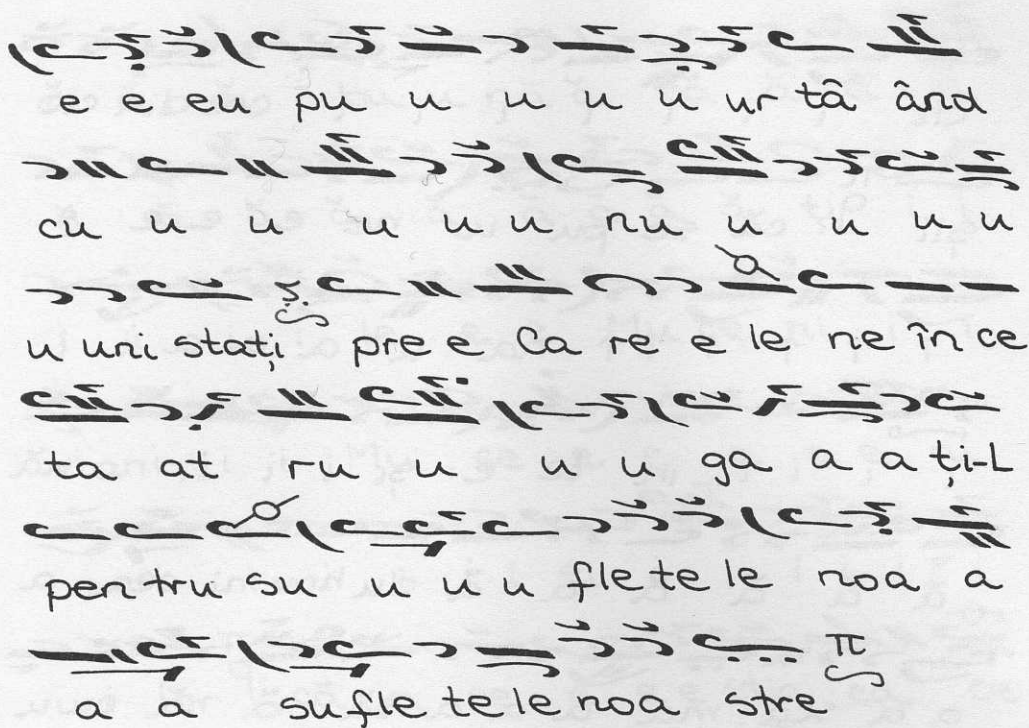 e e eu pu u u u u ur tâ ând
cu u u u u u nu u u u u
u uni stați pre e Ca re e le ne în ce
ta at ru u u u ga a a ți-L
pen tru su u u u fle te le noa a
a a su fle te le noa stre π